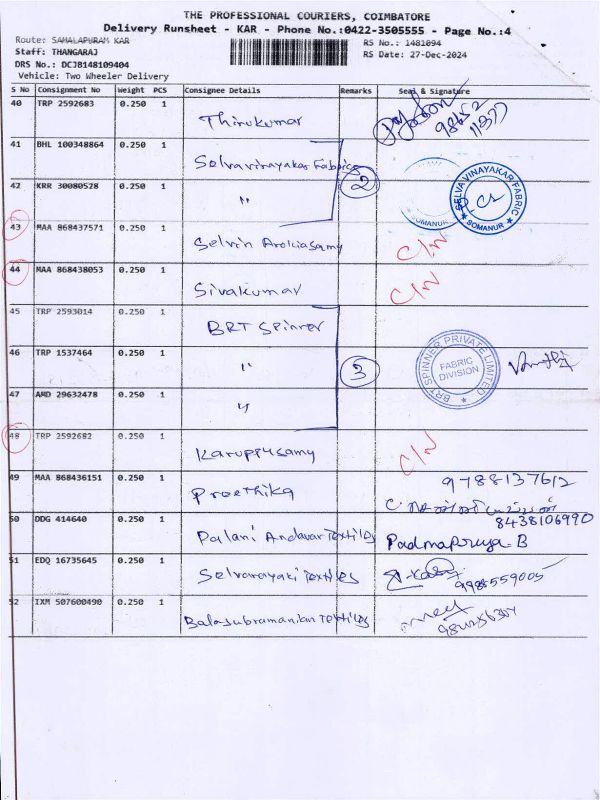 THE PROFESSIONAL COURIERS, COIMBATORE
Delivery Runsheet - KAR - Phone No.:0422-3505555 - Page No.:4
Route: SAMALAPURAM KAR
RS No.: 1481094
Staff: THANGARAJ
RS Date: 27-Dec-2024
DRS No.: DCJB148109404
Vehicle: Two Wheeler Delivery
S No Consignment No Weight PCS Consignee Details Remarks Seal & Signature
40 TRP 2592683 0.250 1 Thirukumar
98652
11977
41 BHL 100348864 0.250 1 Selvavinayakar Fabrics
2
SELVA VINAYAKAR FABRIC
SOMANUR
SOMANUR
42 KRR 30080528 0.250 1 "
43 MAA 868437571 0.250 1 Selvin Arokiasamy C/N
44 MAA 868438053 0.250 1 Sivakumar C/N
45 TRP 2593014 0.250 1 BRT Spinner
46 TRP 1537464 0.250 1 "
3
BRT SPINNER PRIVATE LIMITED
FABRIC
DIVISION
47 AMD 29632478 0.250 1 "
48 TRP 2592682 0.250 1 Karuppusamy C/N
49 MAA 868436151 0.250 1 Preethika 9788137612
50 DDG 414640 0.250 1 Palani Andavar Textiles
8438106990
Padmapriya.B
51 EDQ 16735645 0.250 1 Selvanayaki Textiles
9985559005
52 IXM 507600490 0.250 1 Balasubramanian Textiles